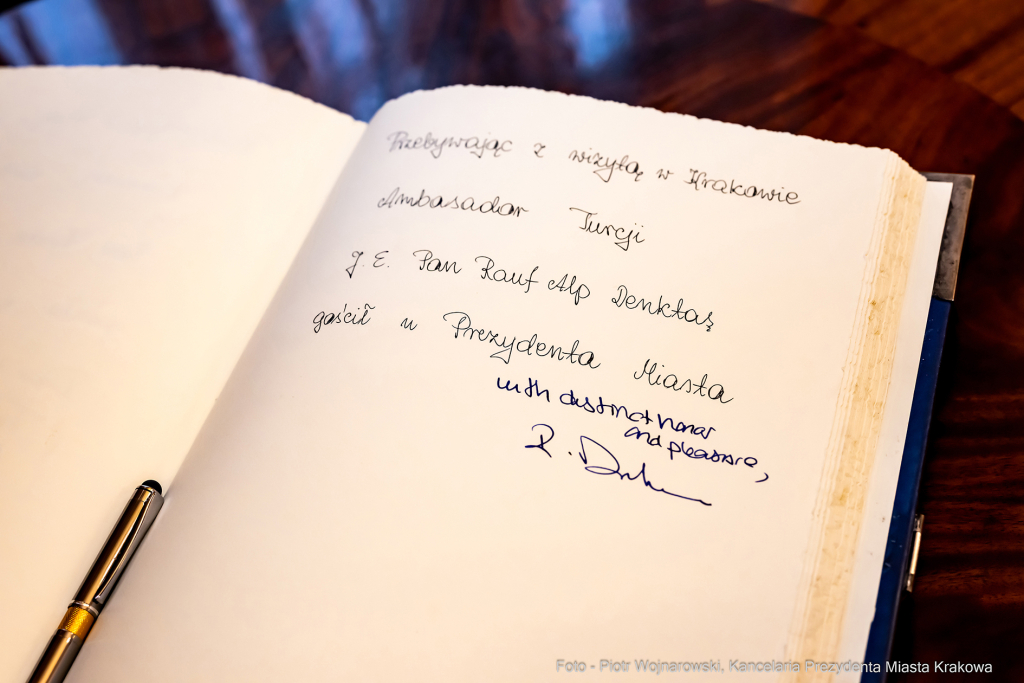 Przebywając z wizytą w Krakowie
Ambasador Turcji
J. E. Pan Rauf Alp Denktaş
gościł u Prezydenta Miasta
with distinct honor
and pleasure,
R. Denk
Foto - Piotr Wojnarowski, Kancelaria Prezydenta Miasta Krakowa